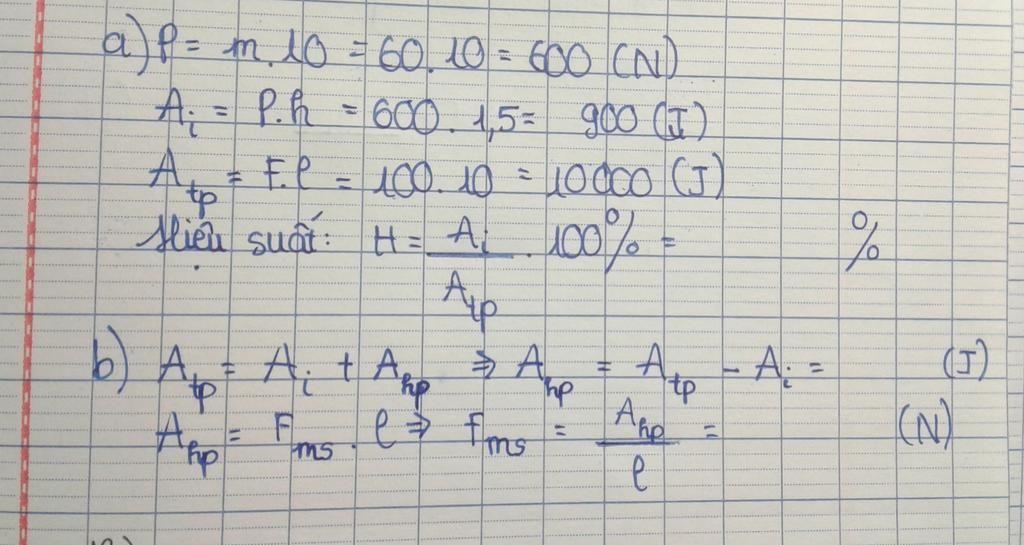 a) P = m.10 = 60.10 = 600 (N)
A_i = P.h = 600. 1,5 = 900 (J)
A_tp = F.l = 100.10 = 10000 (J)
Hiệu suất: H = A_i / A_tp . 100% = %
b) A_tp = A_i + A_hp ⇒ A_hp = A_tp - A_i = (J)
A_hp = F_ms . l ⇒ F_ms = A_hp / l = (N)